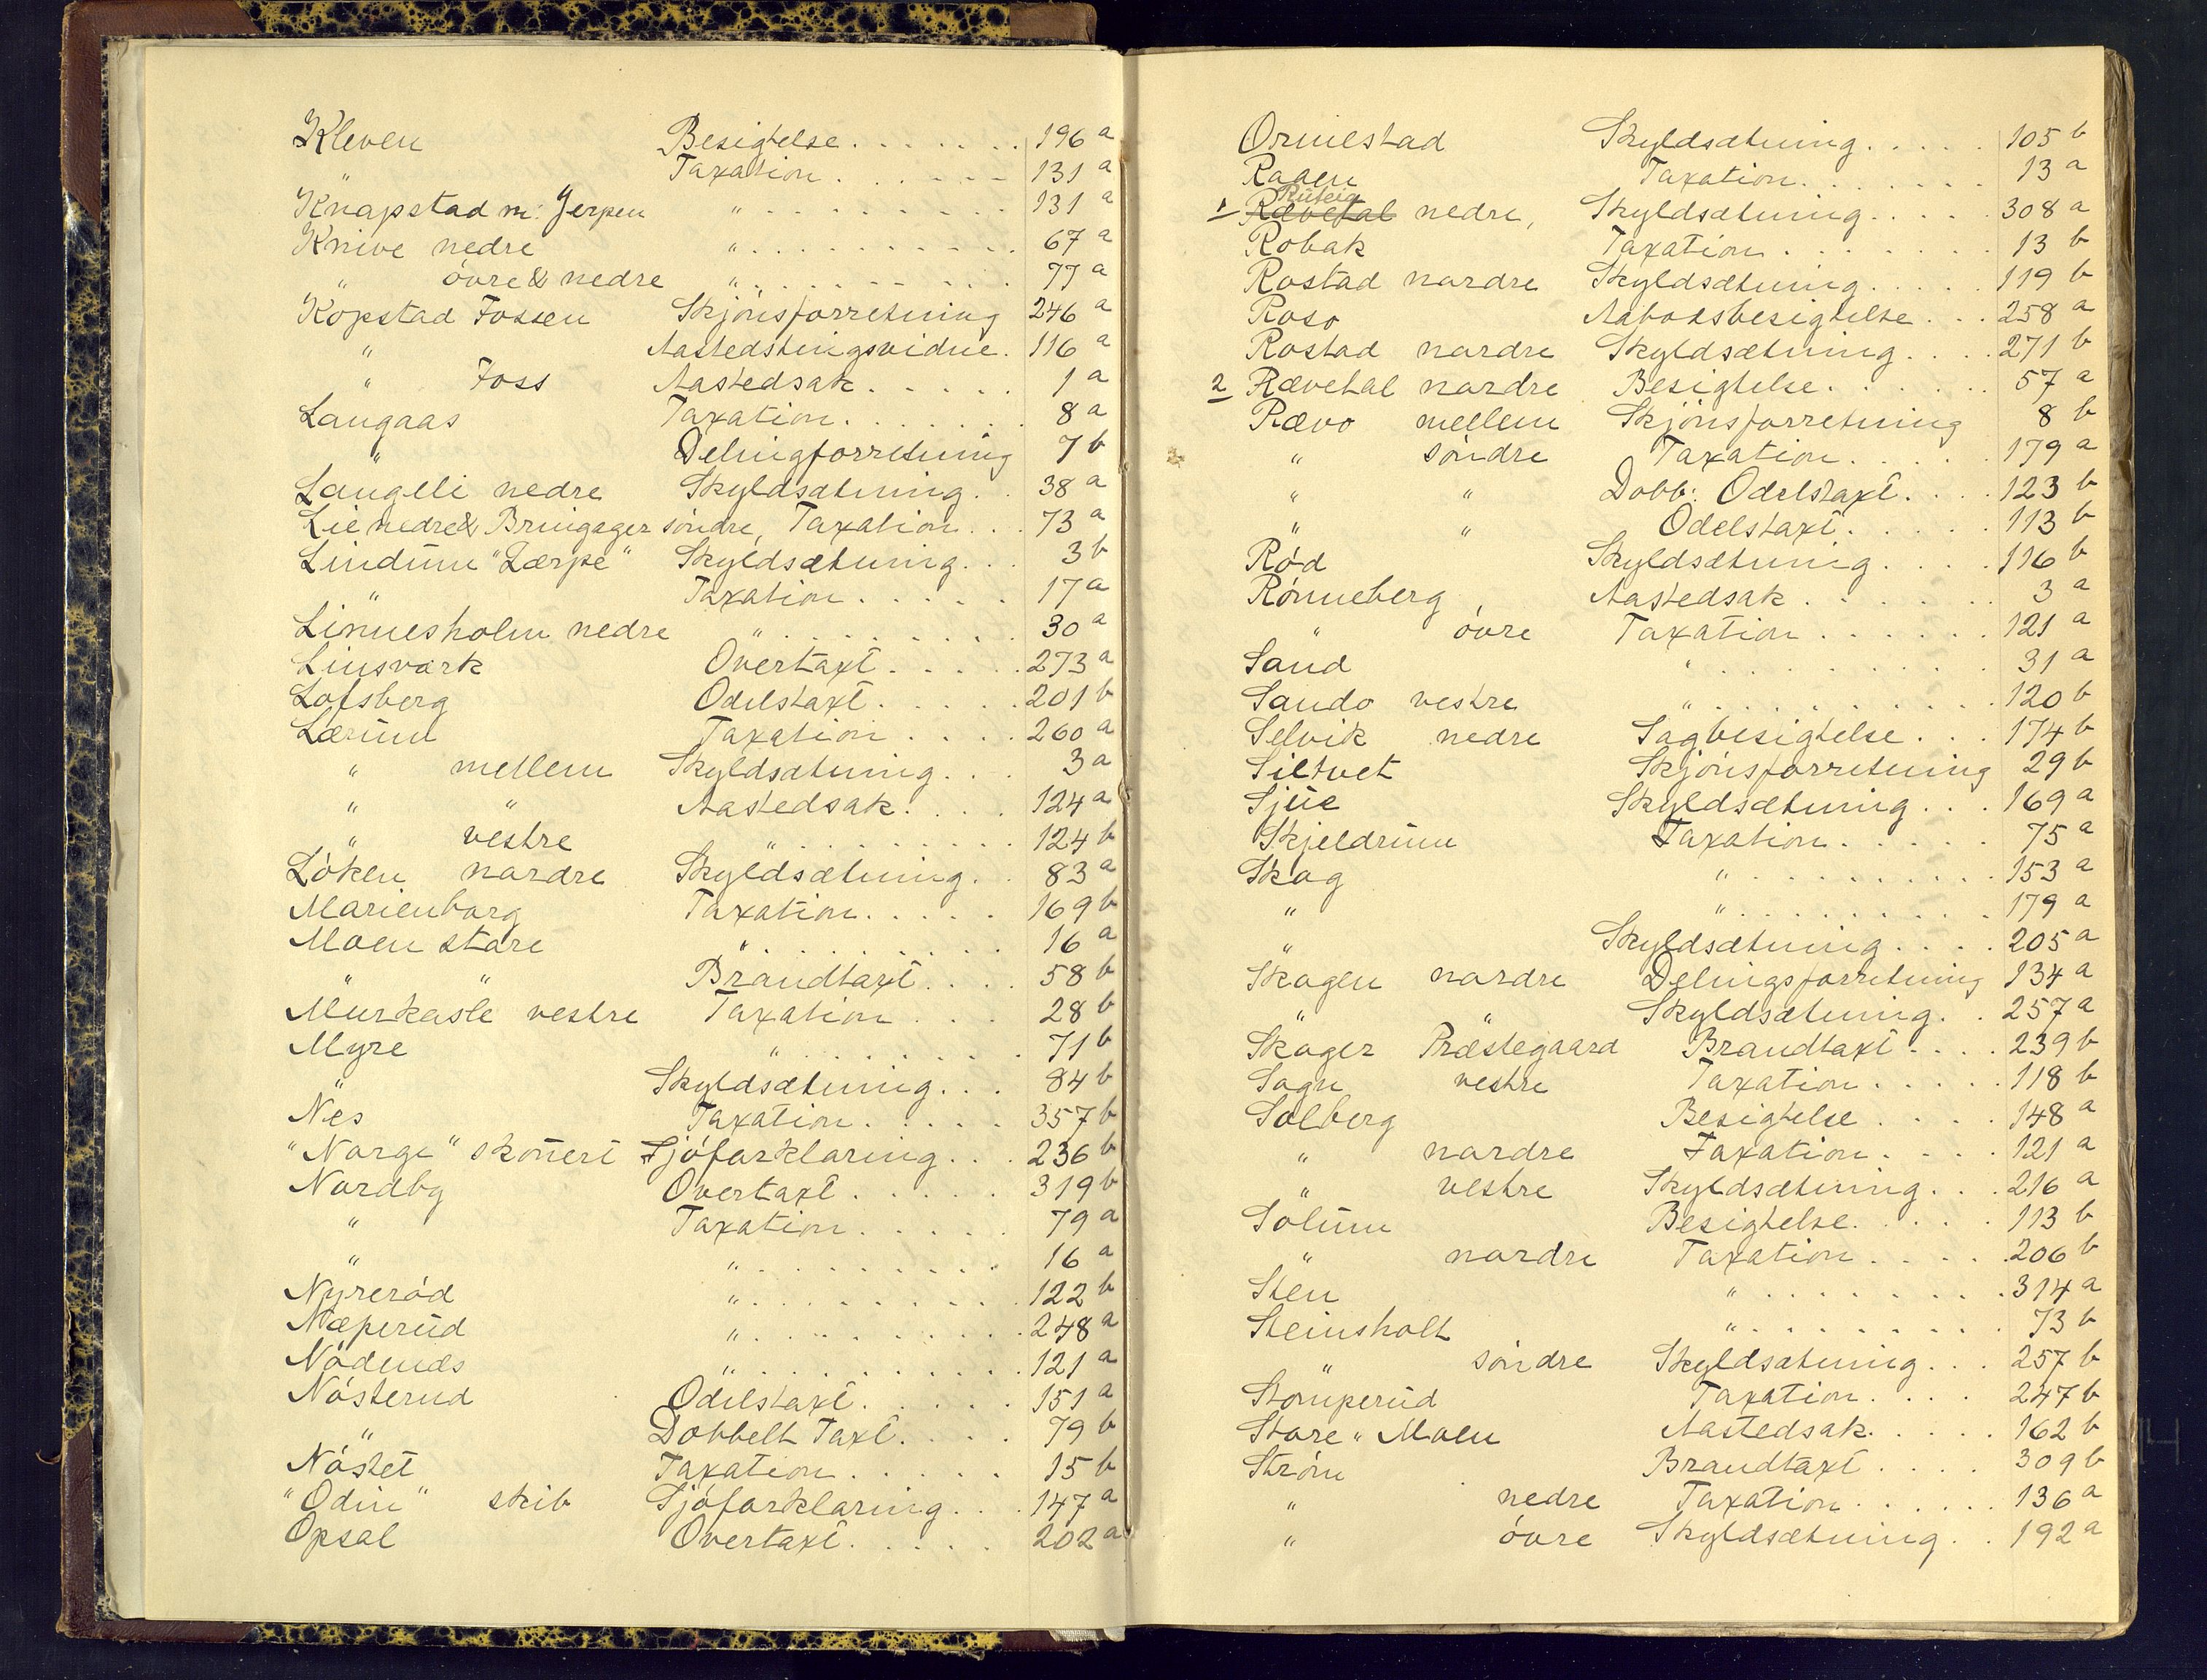 Kleven Besigtelse. . . . . . . 196 a
" Taxation. . . . - - - 131 a
Knapstad m: Jerpen " . . . . . . . . . . 131 a
Knive nedre " . . . . . . . . . . 67 a
" övre & nedre " . . . . . . . . . . 77 a
Kopstad Fossen Skjönsforretning 246 a
" Aastedstingsvidne. 116 a
" Foss Aastedsak. . . . . 1 a
Langaas Taxation. . . . . . . 8 a
" Delingforretning 7 b
Langeli nedre Skyldsætning. . 38 a
Lie nedre & Bruigager söndre, Taxation. . . 73 a
Lindum "Lærpe" Skyldsætning. . . 3 b
" Taxation. . . . . 17 a
Linnesholm nedre " . . . . . . . . . 30 a
Linsvark Overtaxt. . . . . 273 a
Lofsberg Odelstaxt. . . . . 201 b
Lærum Taxation. . . . 260 a
" mellem Skyldsætning. . . 3 a
" " Aastedsak. . . . 124 a
" vestre " . . . . . . . . . 124 b
Löken nordre Skyldsætning. . 83 a
Marienborg Taxation. . . . . 169 b
Moen store " . . . . . . . . . . 16 a
" " Brandtaxt. . . . 58 b
Murkaste vestre Taxation. . . 28 b
Myre " . . . . . . . . . 71 b
" Skyldsætning. . . 84 b
Nes Taxation. . . . . 357 b
"Norge" skonert Sjöforklaring. . . 236 b
Nordby Overtaxt. . . . . 319 b
" Taxation. . . . . 79 a
" " . . . . . . . . . 16 a
Nyreröd " . . . . . . . . . 122 b
Næperud " . . . . . . . . . 248 a
Nödenæs " . . . . . . . . . 121 a
Nösterud Odelstaxt. . . . . 151 a
" Dobbelt Taxt. . . . 79 b
Nöstet Taxation. . . . . 15 b
"Odin" skib Sjöforklaring. . . 147 a
Opsal Overtaxt. . . . . 202 a
Ormestad Skyldsætning. . . . . 105 b
Raaen Taxation. . . . . . . 13 a
Ruteig
1 Rævetal nedre, Skyldsætning. . . . 308 a
Robak Taxation. . . . . . . 13 b
Rostad nordre Skyldsætning. . . . 119 b
Roso Aabodsbesigtelse. . . 258 a
Rostad nordre Skyldsætning. . . . 271 b
2 Rævetal nordre Besigtelse. . . . . . 57 a
Rævo mellem Skjönsforretning 8 b
" söndre Taxation. . . . . 179 a
" " Dobb: Odelstaxt. . . . 123 b
" " Odelstaxt. . . . . 113 b
Röd Skyldsætning. . . . 116 b
Rönneberg, Aastedsak. . . . . . . 3 a
" övre Taxation. . . . . . 121 a
Sand " . . . . . . . . . 31 a
Sando vestre " . . . . . . . . . 120 b
Selvik nedre Sagbesigtelse. . . 174 b
Siltvet Skjönsforretning 29 b
Sjue Skyldsætning. . . 169 a
Skjeldrum Taxation. . . . . 75 a
Skog " . . . . . . . . . 153 a
" " . . . . . . . . . 179 a
" Skyldsætning. . . . 205 a
Skogen nordre Delingsforretning 134 a
" " Skyldsætning. . 257 a
Skoger Præstegaard Brandtaxt. . . . 239 b
Sogn vestre Taxation. . . . . 118 b
Solberg Besigtelse. . . . 148 a
" nordre Taxation. . . . 121 a
" vestre Skyldsætning. . . 216 a
Solum Besigtelse. . . . . 113 b
" nordre Taxation. . . . 206 b
Sten " . . . . . . . . . 314 a
Steinsholt " . . . . . . . . . 73 b
" söndre Skyldsætning. . . 257 b
Stomperud Taxation. . . . 247 b
Store" Moen Aastedsak. . . . . 162 b
Ström Brandtaxt. . . . 309 b
" nedre Taxation. . . . . . 136 a
" övre Skyldsætning. . . 192 a